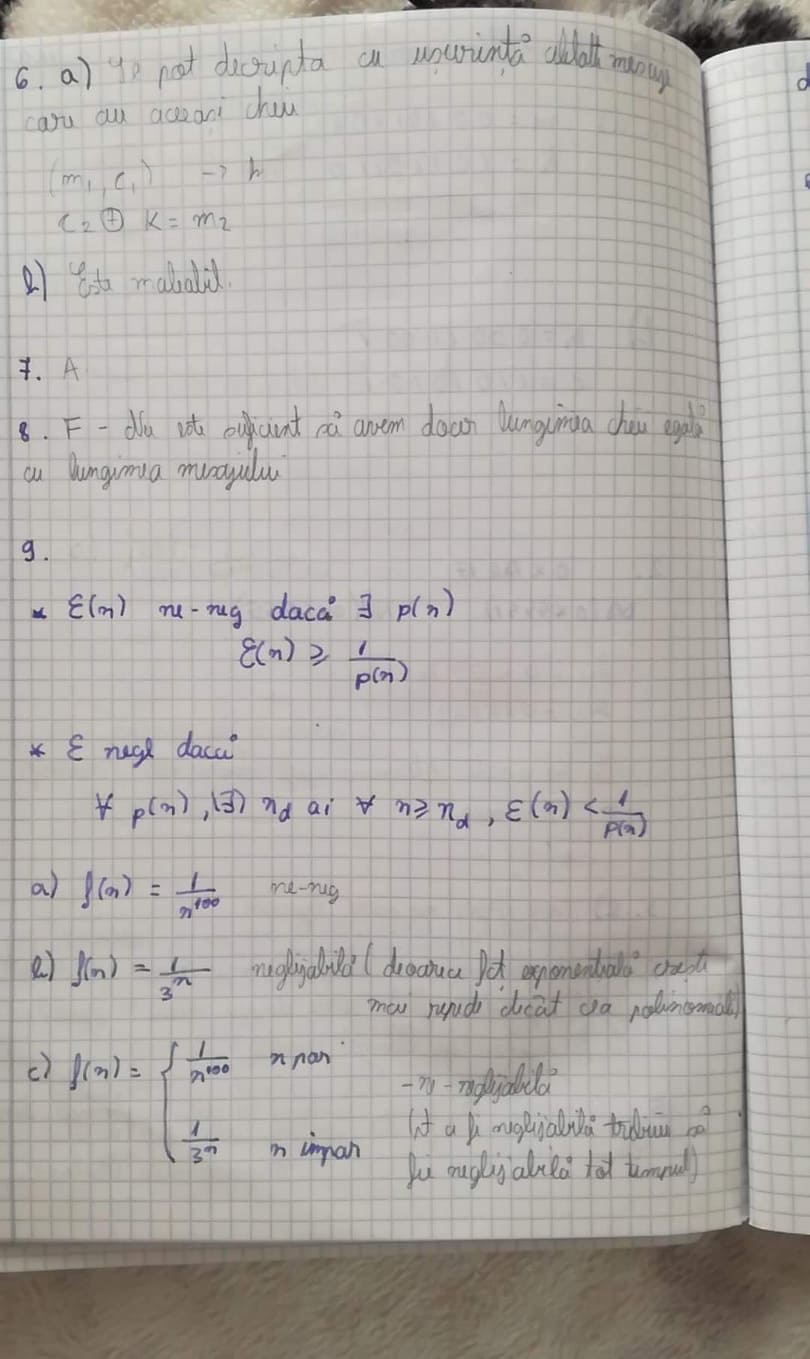 6. a) Se pot decripta cu ușurință celelalte mesaje
care au aceeași cheie
(m₁, c₁) -> k
c₂ ⊕ k = m₂
b) Este maleabil.
7. A
8. F - Nu este suficient să avem doar lungimea cheii egală
cu lungimea mesajului
9.
* ε(n) ne-neg dacă ∃ p(n)
ε(n) ⩾ 1/p(n)
* ε negl dacă
∀ p(n), (∃) n_d ai ∀ n ⩾ n_d, ε(n) < 1/p(n)
a) f(n) = 1/n¹⁰⁰ ne-neg
b) f(n) = 1/3ⁿ neglijabilă (deoarece fct exponențială crește
mai repede decât cea polinomială)
c) f(n) = { 1/n¹⁰⁰ n par
1/3ⁿ n impar
- ne-neglijabilă
(pt a fi neglijabilă trebuie să
fie neglijabilă tot timpul)
d